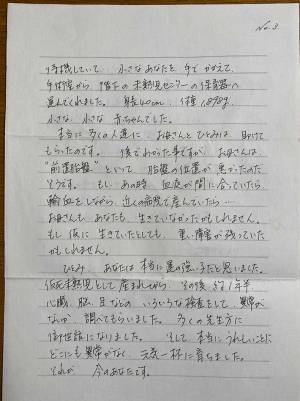 No.3
待機していて 小さなあなたを 手で かかえて、
手術室から 階下の 未熟児センターの 保育器へ
運んでくれました。 身長40cm、体重1,898g、
小さな 小さな 赤ちゃんでした。
本当に 多くの人達に お母さんと ひとみは 助けて
もらったのです。 後でわかった事ですが、お母さんは、
"前置胎盤" といって 胎盤の位置が 悪かったの
だそうです。 もし、あの時 血液が 間に合っていたら
輸血をしながら 近くの病院で産んでいたら…
お母さんも あなたも 生きていなかったかもしれません。
もし 仮に 生きていたとしても 重い障害が 残っていた
かもしれません。
ひとみ、あなたは 本当に 運の強い子だと思いました。
仮死未熟児として 産まれてから その後 約1年半、
心臓、脳、目などの いろいろな検査をして、異常が
ないか 調べてもらいました。 多くの先生方に
御世話に なりました。 そして 本当に うれしいことに
どこにも異常がなく 元気一杯に育ちました。
それが 今のあなたです。